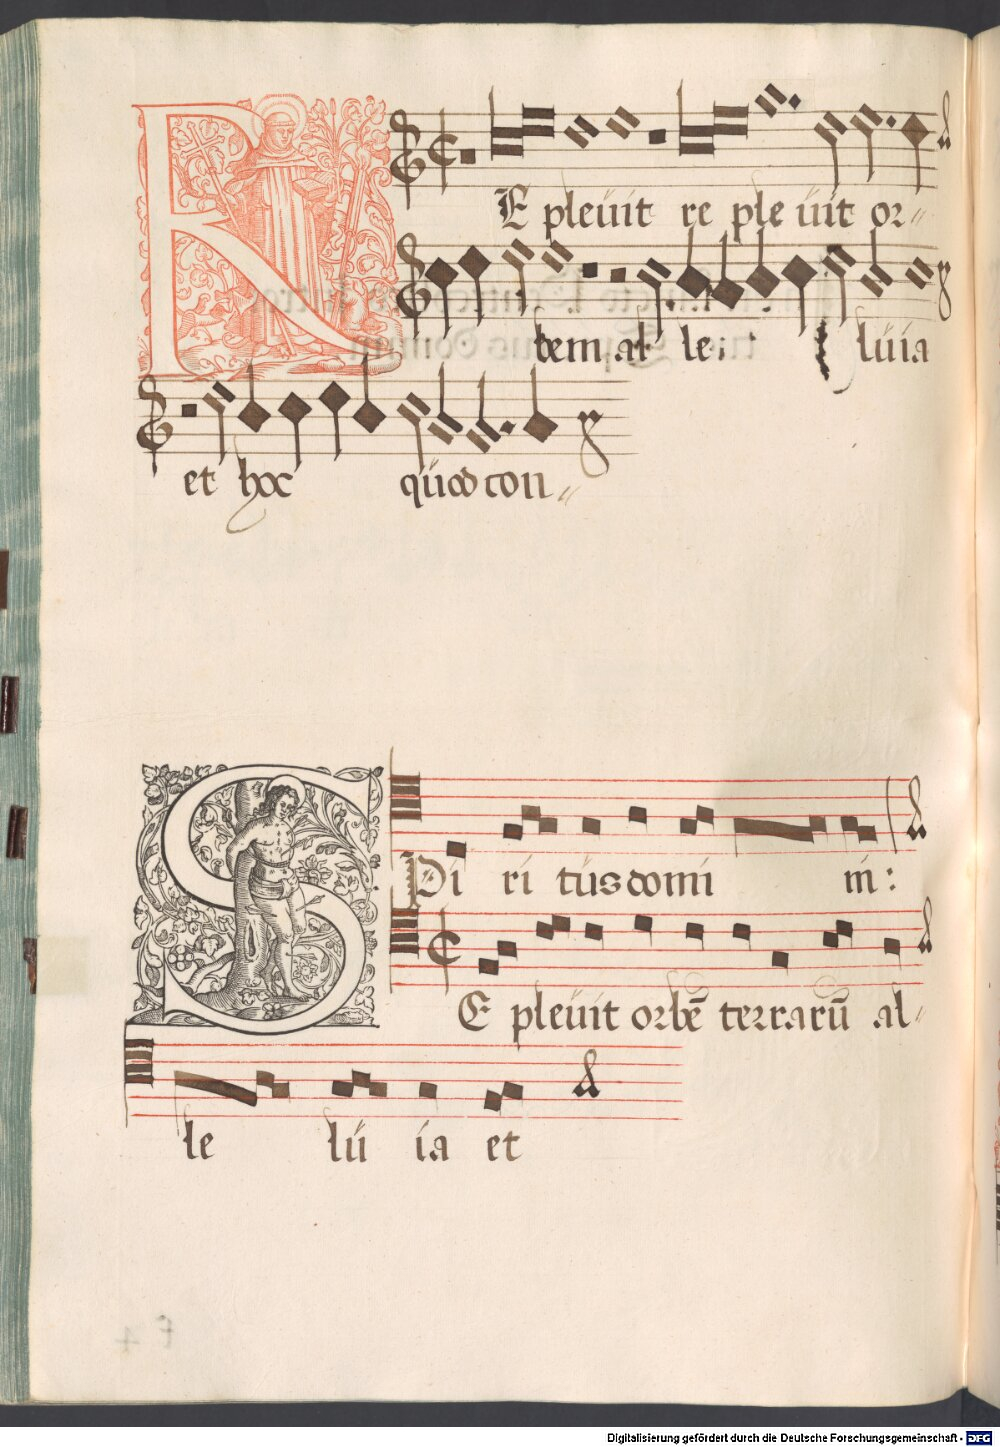 RE pleuit re ple uit or〃
bem al le: luia
et hoc quod con〃
SPi ri tus domi ni:
E pleuit orbē terrarū al〃
le lu ia et
Digitalisierung gefördert durch die Deutsche Forschungsgemeinschaft - DFG